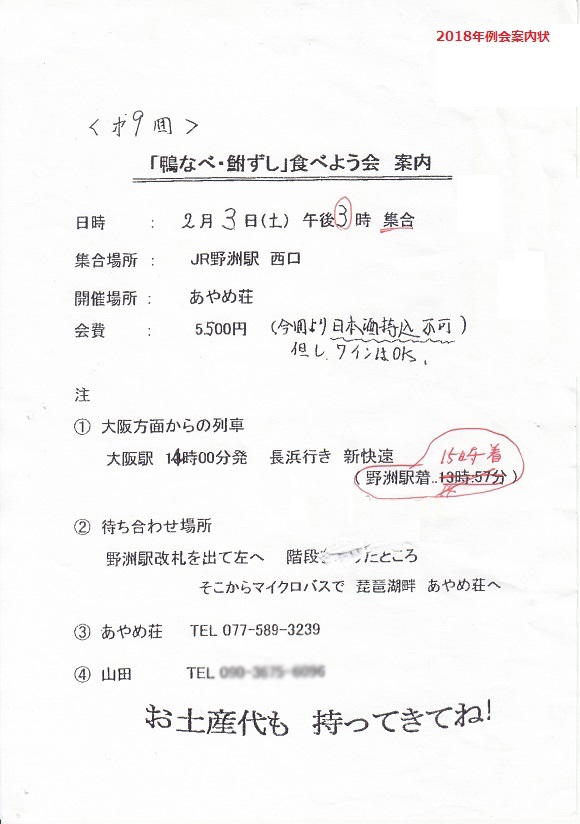 2018年例会案内状
<第9回>
「鴨なべ・鮒ずし」食べよう会 案内
日時 : 2月3日(土) 午後3時 集合
集合場所 : JR野洲駅 西口
開催場所 : あやめ荘
会費 : 5,500円 (今回より日本酒持込 不可)
但し、ワインはOK.
注
① 大阪方面からの列車
大阪駅 14時00分発 長浜行き 新快速
15時着
(野洲駅着..13時:57分)
② 待ち合わせ場所
野洲駅改札を出て左へ 階段 たところ
そこからマイクロバスで 琵琶湖畔 あやめ荘へ
③ あやめ荘 TEL 077-589-3239
④ 山田 TEL
お土産代も 持ってきてね!